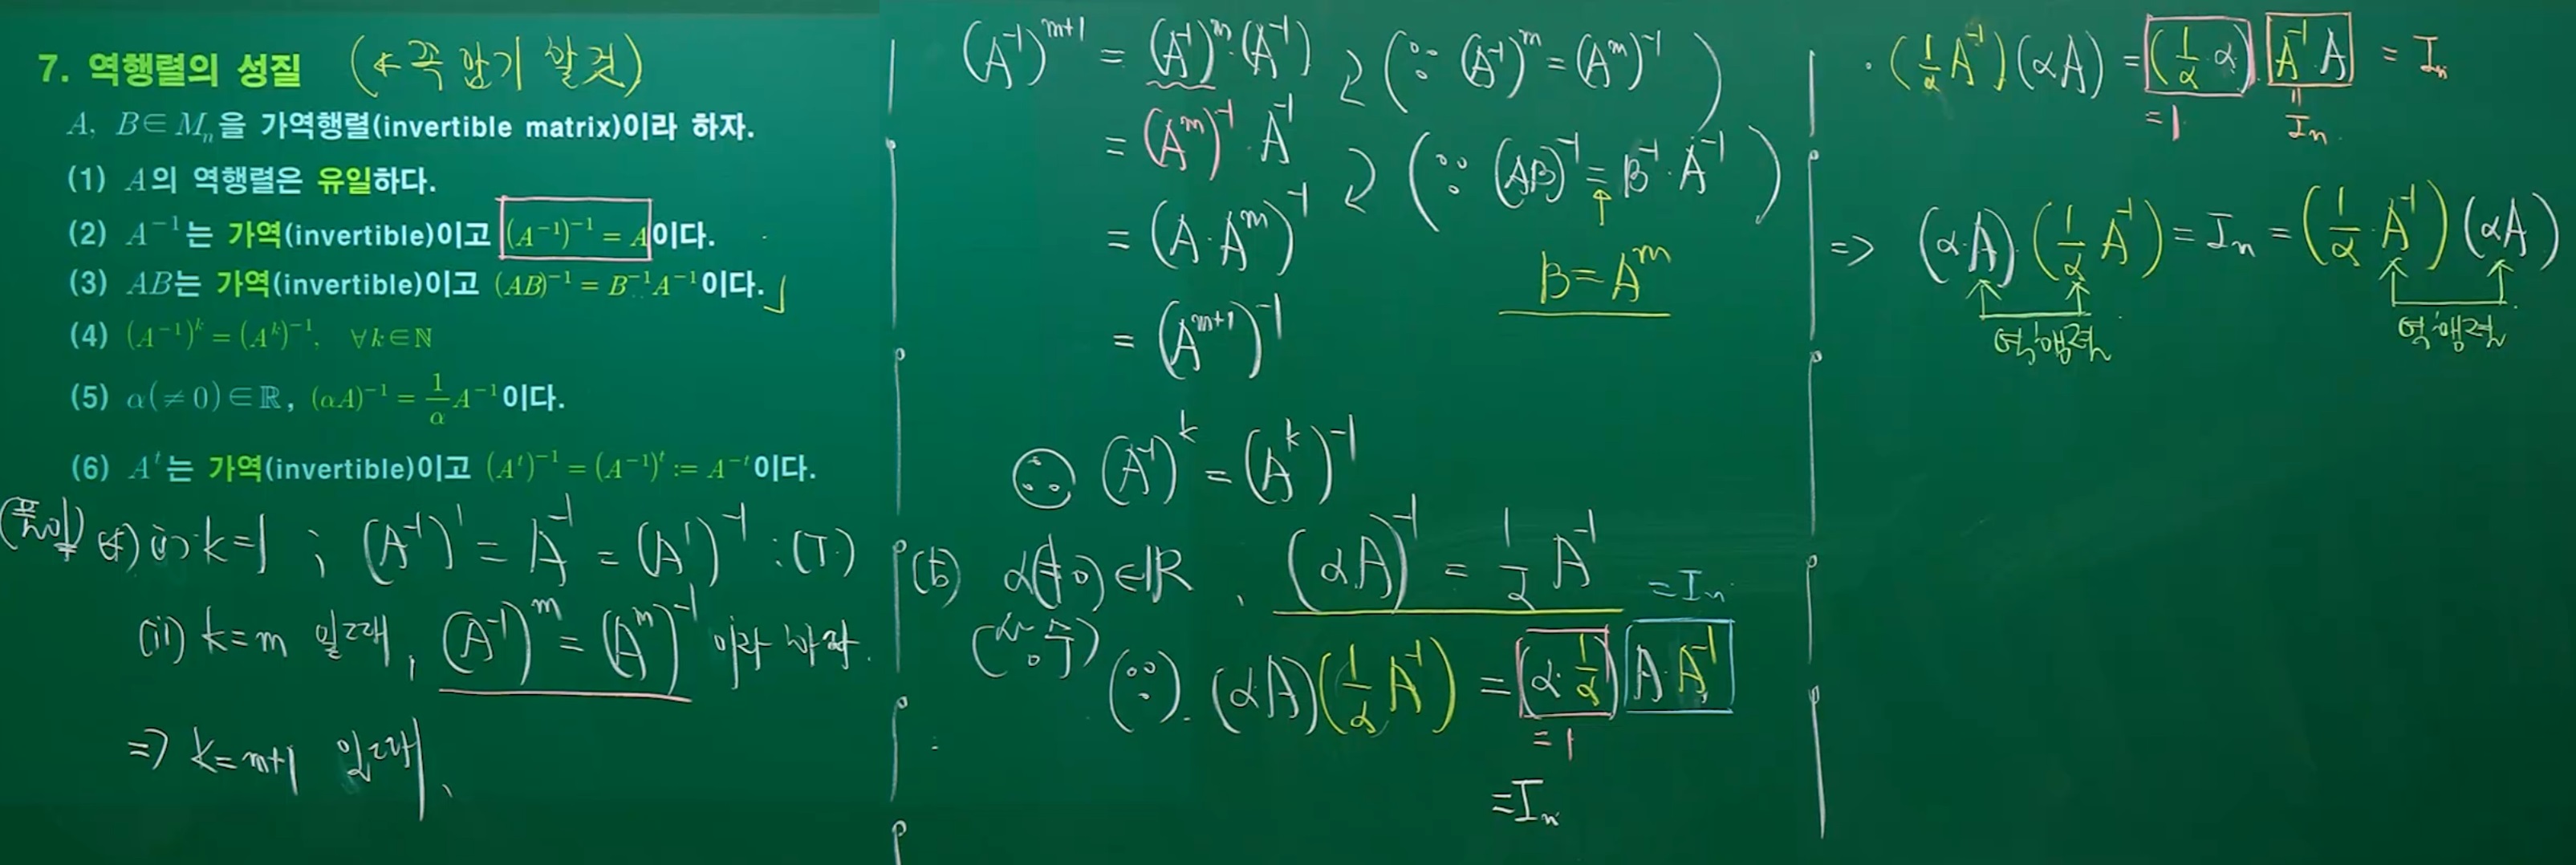 7. 역행렬의 성질 (← 꼭 암기 할것)
A, B∈M_n을 가역행렬(invertible matrix)이라 하자.
(1) A의 역행렬은 유일하다.
(2) A⁻¹는 가역(invertible)이고 (A⁻¹)⁻¹ = A이다.
(3) AB는 가역(invertible)이고 (AB)⁻¹ = B⁻¹A⁻¹이다.
(4) (A⁻¹)^k = (A^k)⁻¹, ∀k∈ℕ
(5) α(≠0)∈ℝ, (αA)⁻¹ = 1/α A⁻¹이다.
(6) A^t는 가역(invertible)이고 (A^t)⁻¹ = (A⁻¹)^t := A^-t이다.
(풀이) (4) (i) k=1 ; (A⁻¹)¹ = A⁻¹ = (A¹)⁻¹ : (T)
(ii) k=m 일때, (A⁻¹)^m = (A^m)⁻¹ 이라 하자.
⇒ k=m+1 일때,
(A⁻¹)^m+1 = (A⁻¹)^m·(A⁻¹) (∵ (A⁻¹)^m = (A^m)⁻¹)
= (A^m)⁻¹·A⁻¹ (∵ (AB)⁻¹ = B⁻¹·A⁻¹)
= (A·A^m)⁻¹ B=A^m
= (A^m+1)⁻¹
∴ (A⁻¹)^k = (A^k)⁻¹
(5) α(≠0)∈ℝ, (αA)⁻¹ = 1/α A⁻¹
(상수)
(∵) · (αA)(1/α A⁻¹) = (α·1/α) A·A⁻¹ =I_n
=1
=I_n
· (1/α A⁻¹)(αA) = (1/α·α) A⁻¹·A = I_n
=1 = I_n
⇒ (α·A)·(1/α A⁻¹) = I_n = (1/α·A⁻¹)(αA)
역행렬 역행렬